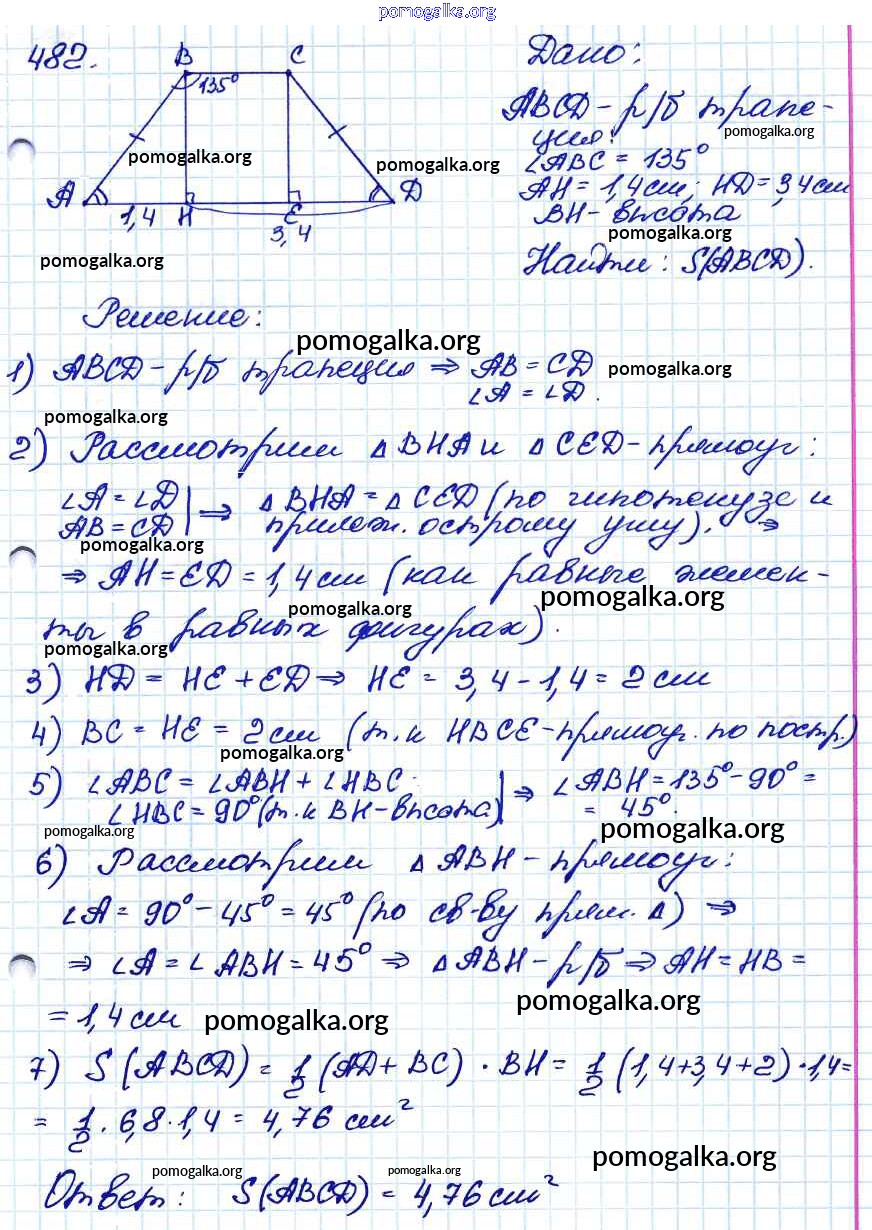 pomogalka.org
482.
B C
135°
pomogalka.org
pomogalka.org
A H E D
1,4
3,4
pomogalka.org
Дано:
ABCD - р/б трапе-
ция:
pomogalka.org
∠ABC = 135°
AH = 1,4 см; HD = 3,4 см
BH - высота
pomogalka.org
Найти: S(ABCD).
Решение:
pomogalka.org
1) ABCD - р/б трапеция ⇒ AB = CD
pomogalka.org
∠A = ∠D.
pomogalka.org
2) Рассмотрим △BHA и △CED - прямоуг:
∠A = ∠D | ⇒ △BHA = △CED (по гипотенузе и
AB = CD | прилеж. острому углу). ⇒
pomogalka.org
⇒ AH = ED = 1,4 см (как равные элемен-
pomogalka.org
pomogalka.org
ты в равных фигурах).
pomogalka.org
3) HD = HE + ED ⇒ HE = 3,4 - 1,4 = 2 см
4) BC = HE = 2 см (т.к HBCE - прямоуг. по постр.)
pomogalka.org
5) ∠ABC = ∠ABH + ∠HBC | ⇒ ∠ABH = 135° - 90° =
∠HBC = 90° (т.к BH - высота) | = 45°.
pomogalka.org
pomogalka.org
6) Рассмотрим △ABH - прямоуг:
∠A = 90° - 45° = 45° (по св-ву прям. △) ⇒
⇒ ∠A = ∠ABH = 45° ⇒ △ABH - р/б ⇒ AH = HB =
pomogalka.org
= 1,4 см
pomogalka.org
7) S(ABCD) = 1/2 (AD + BC) · BH = 1/2 (1,4 + 3,4 + 2) · 1,4 =
= 1/2 · 6,8 · 1,4 = 4,76 см²
pomogalka.org
pomogalka.org
pomogalka.org
Ответ: S(ABCD) = 4,76 см²